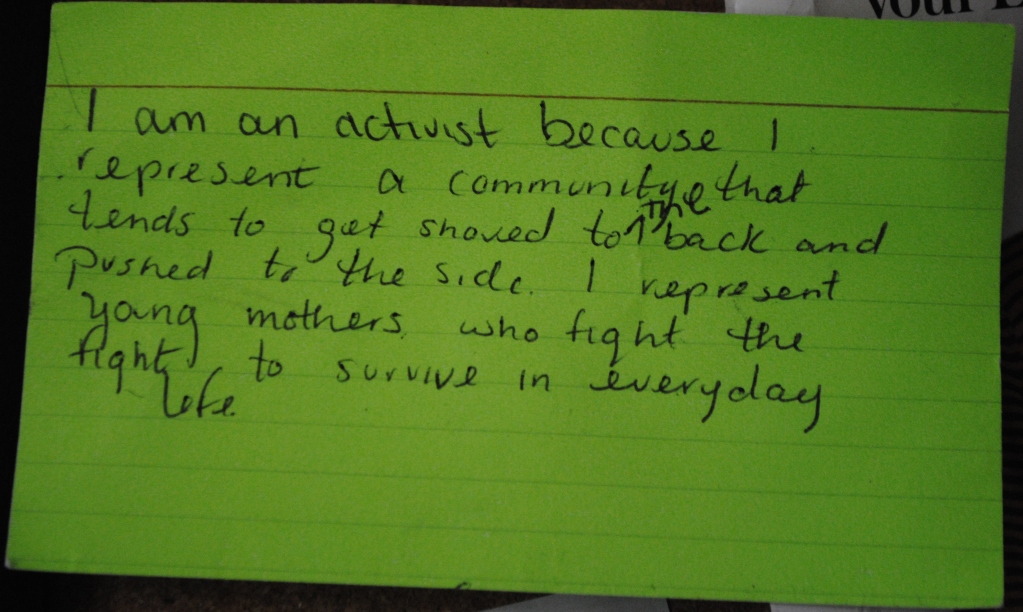 your
I am an activist because I
represent a community that
tends to get shoved to the back and
pushed to the side. I represent
young mothers who fight the
fight to survive in everyday
life.